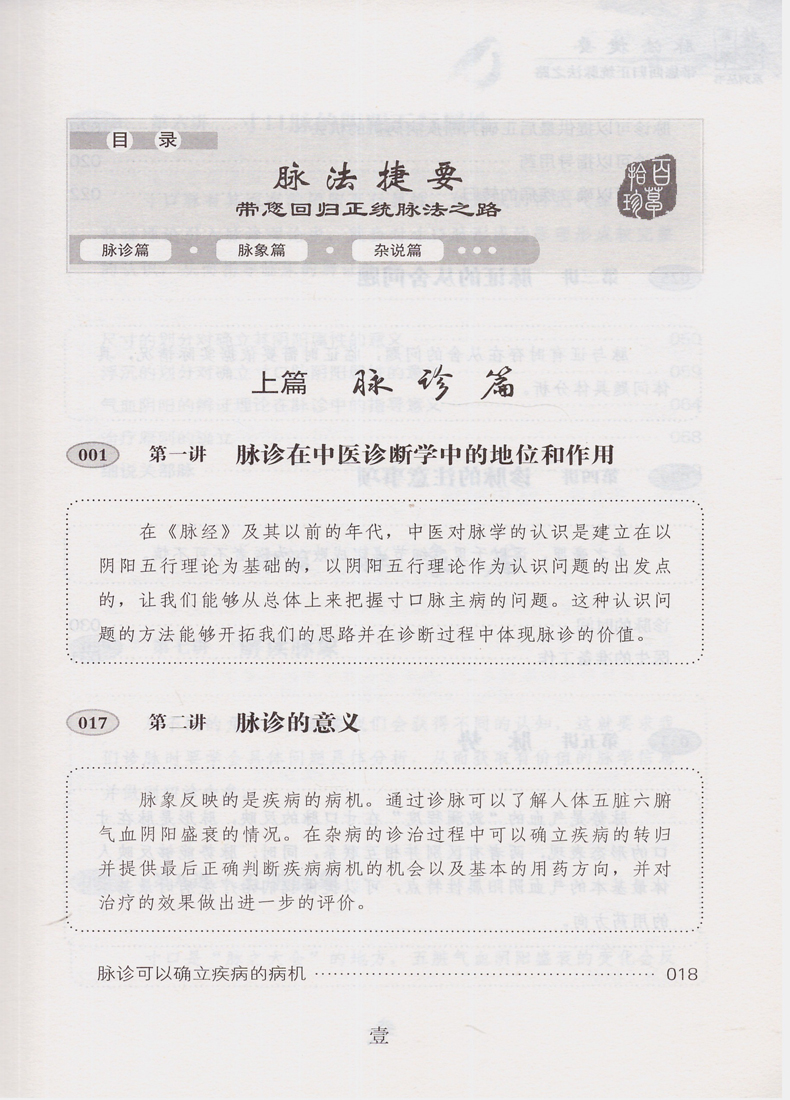 目 录
脉法捷要
带您回归正统脉法之路
百草
拾珍
脉诊篇 · 脉象篇 · 杂说篇 ···
上篇 脉诊篇
001 第一讲 脉诊在中医诊断学中的地位和作用
在《脉经》及其以前的年代，中医对脉学的认识是建立在以
阴阳五行理论为基础的，以阴阳五行理论作为认识问题的出发点
的，让我们能够从总体上来把握寸口脉主病的问题。这种认识问
题的方法能够开拓我们的思路并在诊断过程中体现脉诊的价值。
017 第二讲 脉诊的意义
脉象反映的是疾病的病机。通过诊脉可以了解人体五脏六腑
气血阴阳盛衰的情况。在杂病的诊治过程中可以确立疾病的转归
并提供最后正确判断疾病病机的机会以及基本的用药方向，并对
治疗的效果做出进一步的评价。
脉诊可以确立疾病的病机 ················································ 018
壹